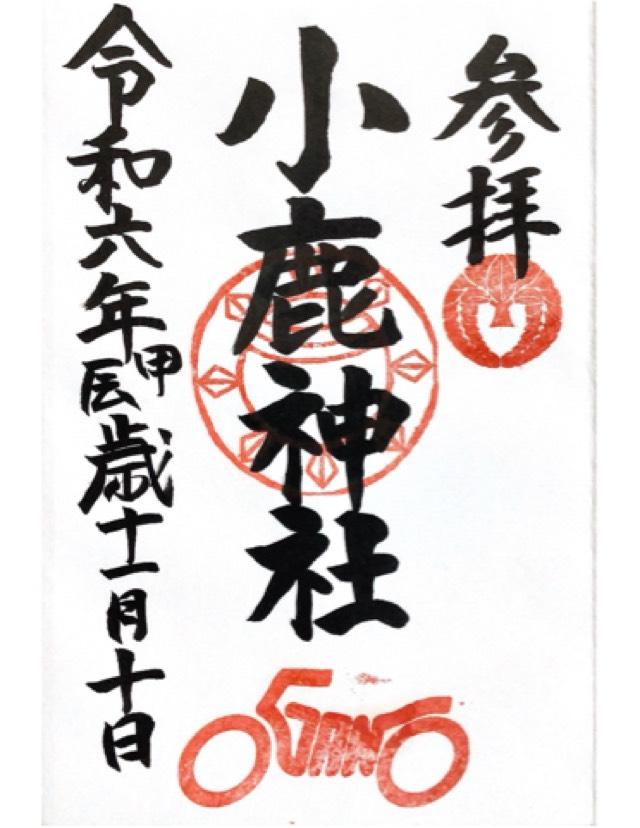 参拝
小鹿神社
令和六年甲辰歳十一月十日
OGANO